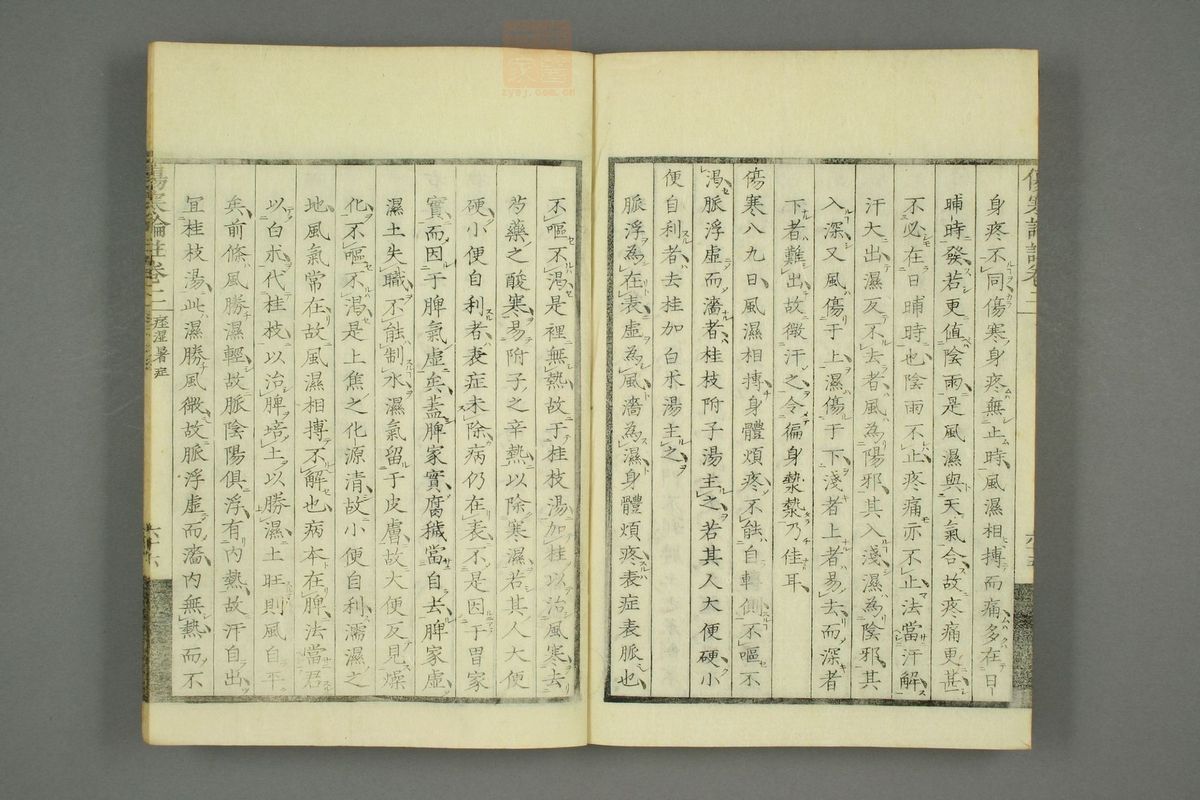 身疼不同傷寒身疼無止時風濕相搏而痛多在日
晡時發若更值陰雨是風濕與天氣合故疼痛更甚
不必在日晡時也陰雨不止疼痛亦不止法當汗解
汗大出濕反不去者風為陽邪其入淺濕為陰邪其
入深又風傷于上濕傷于下淺者上者易去而深者
下者難出故微汗之令徧身漐漐乃佳耳
傷寒八九日風濕相搏身體煩疼不能自轉側不嘔不
渴脈浮虛而濇者桂枝附子湯主之若其人大便硬小
便自利者去桂加白朮湯主之
脈浮為在表虛為風濇為濕身體煩疼表症表脈也
不嘔不渴是裡無熱故于桂枝湯加桂以治風寒去
芍藥之酸寒易附子之辛熱以除寒濕若其人大便
硬小便自利者表症未除病仍在表不是因于胃家
實而因于脾氣虛矣蓋脾家實腐穢當自去脾家虛
濕土失職不能制水濕氣留于皮膚故大便反見燥
化不嘔不渴是上焦之化源清故小便自利濡濕之
地風氣常在故風濕相搏不解也病本在脾法當君
以白朮代桂枝以治脾培土以勝濕土旺則風自平
矣前條風勝濕輕故脈陰陽俱浮有內熱故汗自出
宜桂枝湯此濕勝風微故脈浮虛而濇內無熱而不
傷寒論註卷二
痙濕暑症
六十六